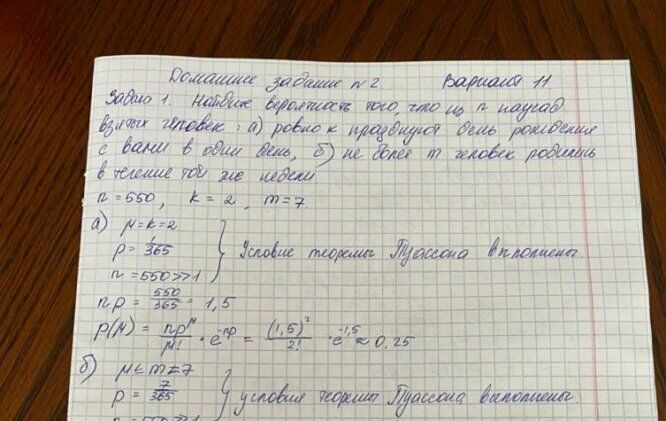 Домашнее задание №2 Вариант 11
Задача 1. Найдите вероятность того что из n наугад
взятых человек: а) ровно k празднуют день рождения
с вами в один день, б) не более m человек родились
в течение той же недели
n = 550, k = 2, m = 7
а) μ = k = 2
p = 1/365
n = 550 >> 1
} Условие теоремы Пуассона выполнены.
np = 550/365 = 1,5
P(μ) = np^μ/μ! · e^-np = (1,5)^2/2! · e^-1,5 ≈ 0,25
б) μ ≤ m = 7
p = 7/365
} условия теоремы Пуассона выполнены.
n = 550 >> 1